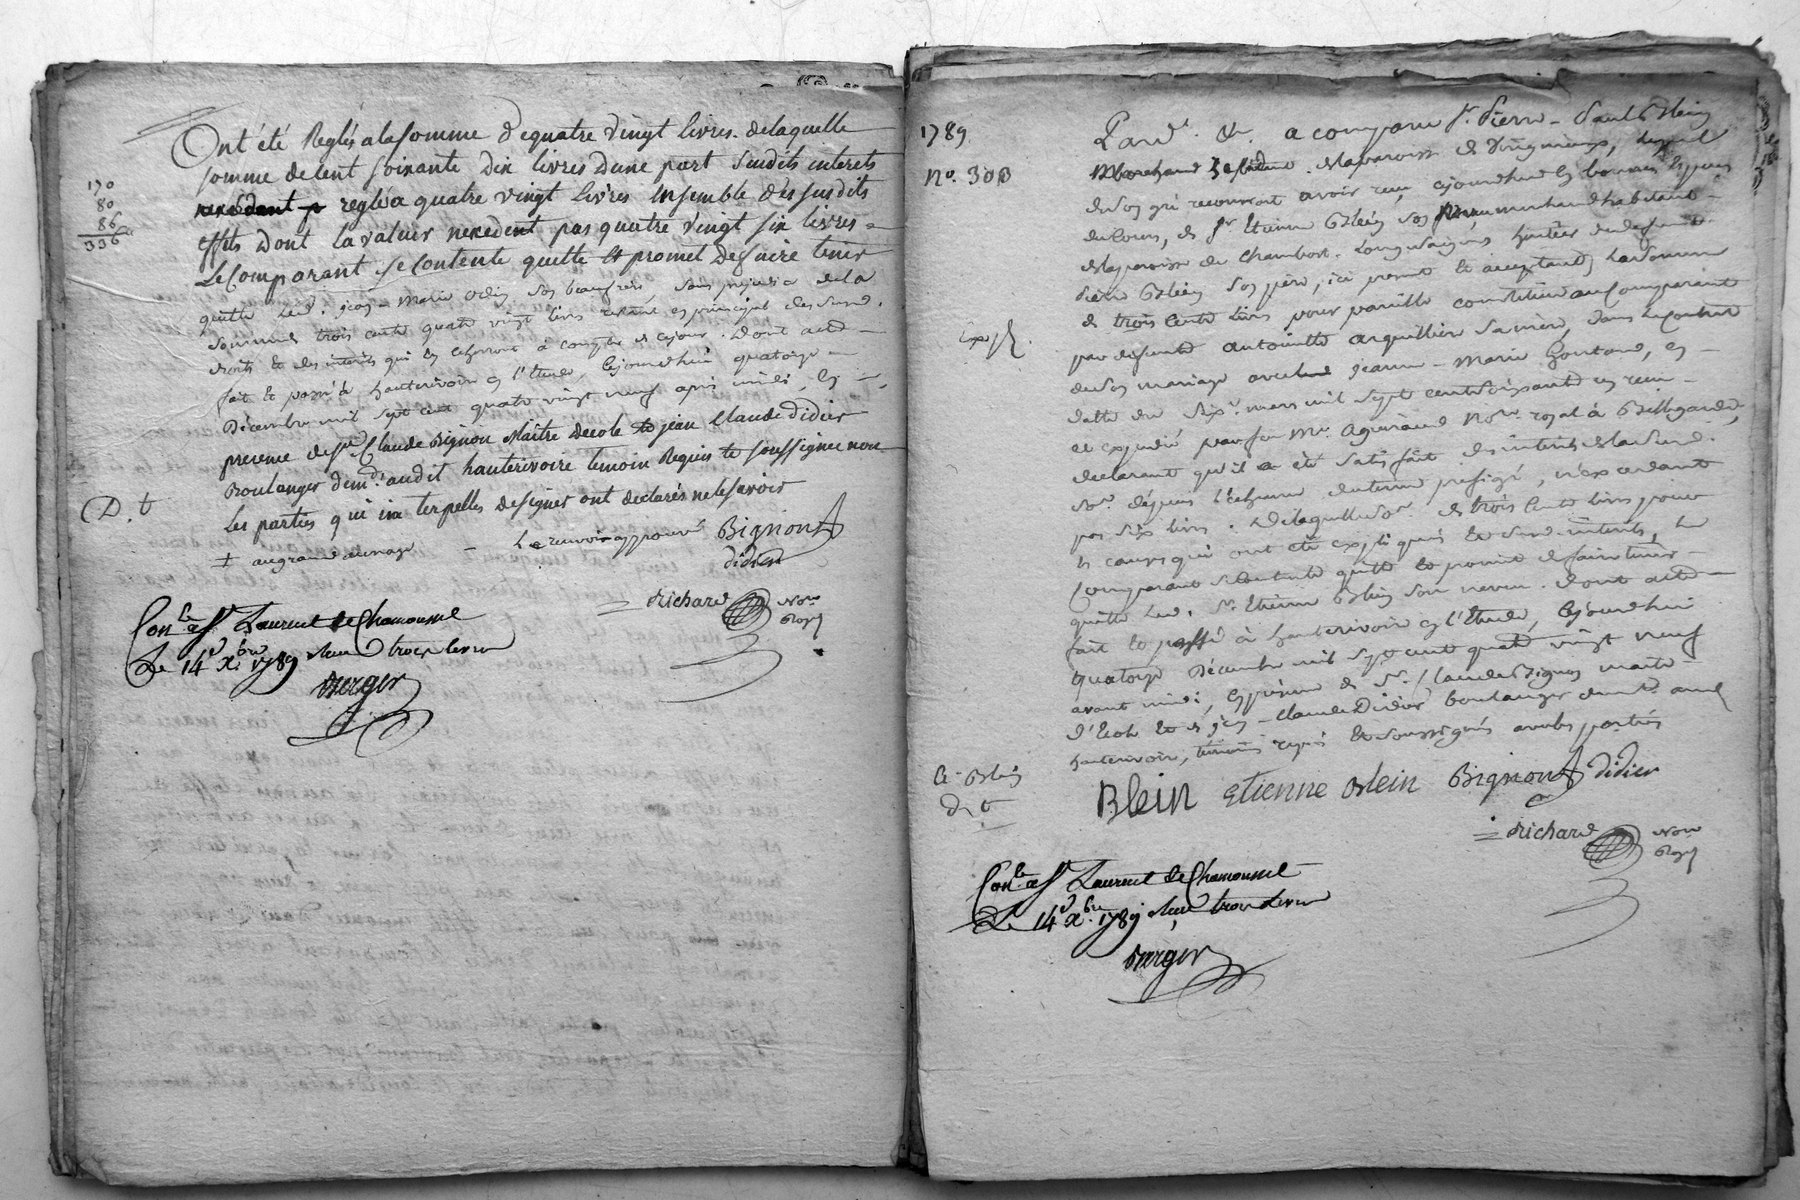 Ont été Reglés a la somme de quatre vingt livres. de laquelle
somme de cent soixante dix livres d'une part susdits interets
reglé a quatre vingt livres ensemble des susdits
effets dont la valeur nexedent pas quatre vingt six livres
Le Comparant se Contente quitte et promet de faire tenir
quitte led. jean Marie Odin son beaufrere sans prejudice de la
somme trois cents quatre vingt livres restante en principal des susd.
droits et des interets qui en echerront à compter de ce jour. Dont acte
fait et passé à hauterivoire en l'Etude, cejourdhui quatorze
Décembre mil sept cent quatre vingt neuf après midi, en
presence de sr. Claude Bignon Maitre decole et jean Claude Didier
Boulanger dem.t audit hauterivoire temoin Requis et soussignee non
Les parties qui in terpelles designer ont declarés ne le savoir
170
80
86
336
D. t
‡ augrand menage
Le renvoi approuvé Bignon
didier
Richard No.re
Royal
Con.lé a St Laurent de Chamousset
Le 14 x.bre 1789 Recu trois livres
Berger
1789
N°. 303
Pard.t &. a comparu sr. Pierre Paul Blein
Marchand
de son gré reconnoit avoir reçu cejourdhui en bonnes espèces
du cours, de sr. Etienne Blein son neveu marchand habitant
de la paroisse de Chambost Longessaigne heritier de defunt
Pierre Blein son père, ici present et acceptant, la somme
de trois cents livres pour pareille constituée au comparant
par defunte antoinette arquillier sa mère, dans le contrat
de son mariage avec jeanne Marie Gontard, en
datte du six mars mil sept cent soixante
et expedié par feu Me. Agniraud No.re royal à Bellegarde,
declarant qu'il a été satisfait des interets de lad. somme
depuis l'echeance du terme prefigé, n'excedant
pas six livres. De laquelle som. de trois cents livres pour
les causes qui ont été expliquées et susd. interets, le
Comparant se contente quitte et promet de faire tenir
quitte led. Sr. Etienne Blein son neveu. Dont acte
fait et passé à hauterivoire en l'Etude, cejourdhui
quatorze Décembre mil sept cent quatre vingt neuf
avant midi, en presence de Sr. Claude Bignon maitre
d'Ecole et de jean Claude Didier boulanger dem.t aud.
hauterivoire, temoins requis et soussignés avec les parties
Exp.
Ct. Blein
D. t
Blein Etienne Blein Bignon didier
Richard No.re
Royal
Con.lé a St Laurent de Chamousset
Le 14 x.bre 1789 Recu trois livres
Berger